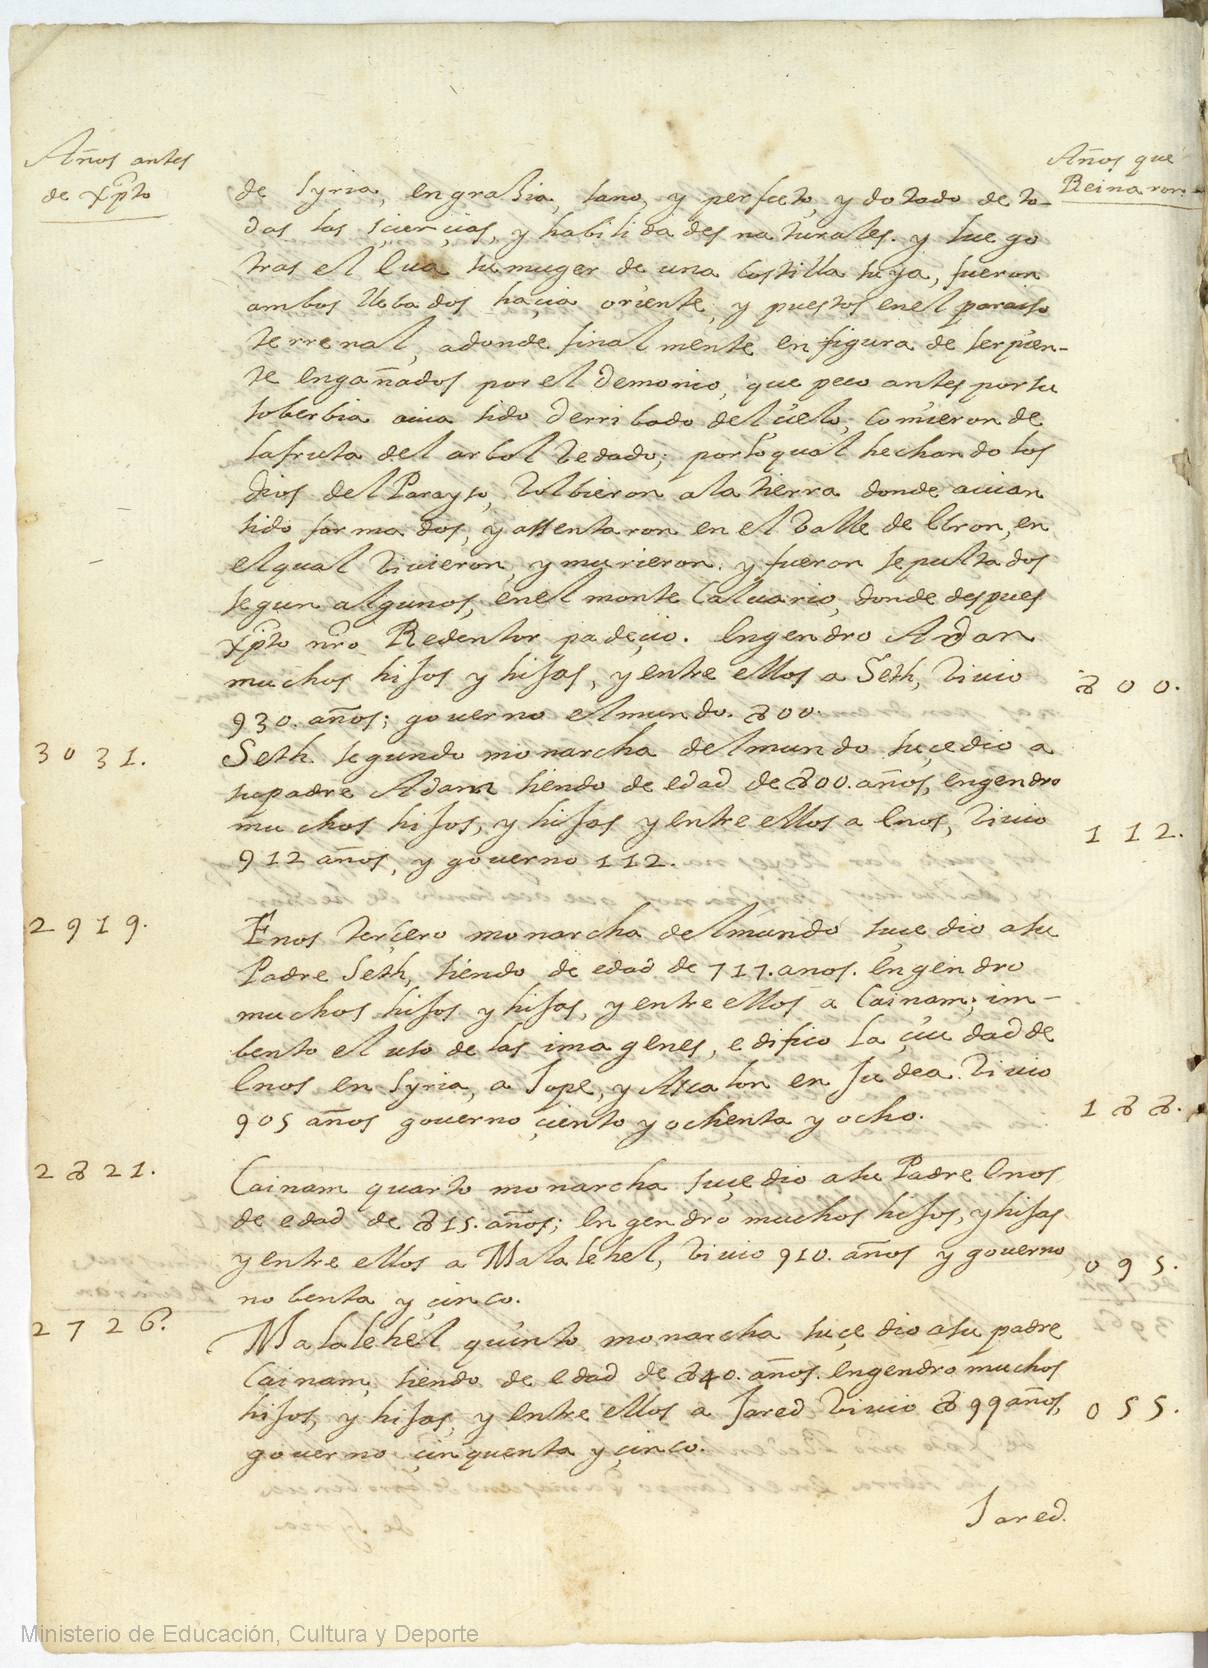 Años antes
de Xpto
Años que
Reinaron.
de Syria, en grasia, sano, y perfecto, y dotado de to-
das las sciencias, y habilidades naturales. y luego
tras el Eua su muger de una costilla suya, fueron
ambos llebados hacia oriente, y puestos en el paraiso
terrenal, adonde finalmente en figura de serpien-
te engañados por el Demonio, que poco antes por su
soberbia auia sido derribado del cielo, comieron de
la fruta del arbol vedado; por lo qual hechandolos
Dios del Parayso, volbieron a la tierra donde auian
sido formados, y assentaron en el valle de Ebron, en
el qual vivieron, y murieron. y fueron sepultados
segun algunos, en el monte Caluario, donde despues
Xpto nro Redentor padecio. Engendro Adan
muchos hijos y hijas, y entre ellos a Seth, vivio
930. años; governo el mundo. 800.
800.
3031.
Seth segundo monarcha del mundo sucedio a
su padre Adam siendo de edad de 800. años, engendro
muchos hijos, y hijas y entre ellos a Enos, vivio
912 años, y governo 112.
112.
2919.
Enos tercero monarcha del mundo sucedio a su
Padre Seth, siendo de edad de 717. anos. Engendro
muchos hijos y hijas, y entre ellos a Cainam; im-
bento el uso de las imagenes, edifico la ciudad de
Enos en Syria, a Jope, y Ascalon en Judea. vivio
905 años governo ciento y ochenta y ocho.
188.
2821.
Cainam quarto monarcha sucedio a su Padre Enos
de edad de 815. años; Engendro muchos hijos, y hijas
y entre ellos a Malalehel, vivio 910. años y governo
nobenta y cinco.
095.
2726.
Malalehel quinto monarcha sucedio a su padre
Cainam, siendo de edad de 840. años. Engendro muchos
hijos, y hijas, y entre ellos a Jared vivio 899 años,
governo cinquenta y cinco.
055.
Jared.
Ministerio de Educación, Cultura y Deporte